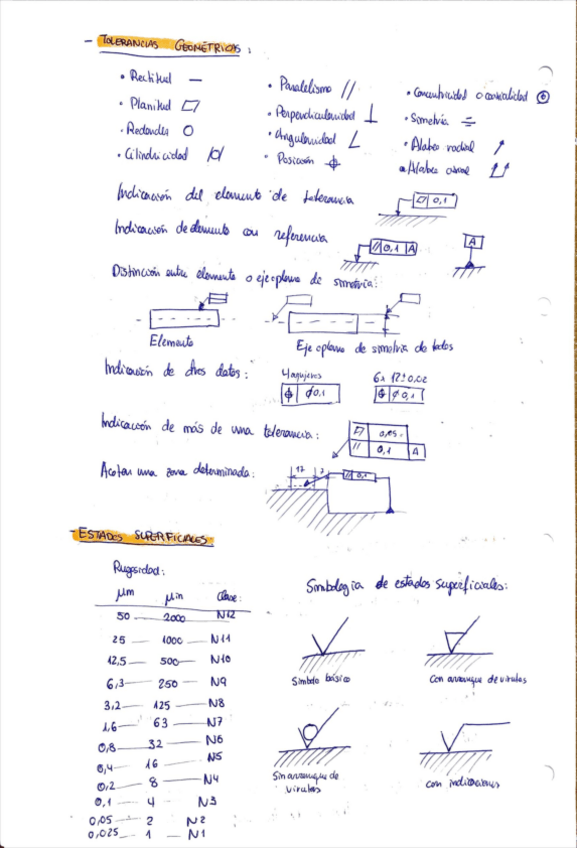 - TOLERANCIAS GEOMÉTRICAS :
• Rectitud —
• Planitud ▱
• Redondez ○
• Cilindricidad ⌭
• Paralelismo //
• Perpendicularidad ⊥
• Angularidad ∠
• Posición ⌖
• Concentricidad o coaxialidad ◎
• Simetría ⌯
• Alabeo radial ↗
• Alabeo axial
Indicación del elemento de tolerancia
▱ 0,1
Indicación de elemento con referencia
// 0,1 A
A
Distinción entre elemento o eje o plano de simetría:
Elemento
Eje o plano de simetría de todos
Indicación de otros datos:
4 agujeros
⌖ ϕ0,1
6x 12±0,02
⌖ ϕ0,1
Indicación de más de una tolerancia:
▱ 0,05
// 0,1 A
Acotar una zona determinada:
17 7
// 0,1
- ESTADOS SUPERFICIALES
Rugosidad:
μm μin Clase:
50 — 2000 — N12
25 — 1000 — N11
12,5 — 500 — N10
6,3 — 250 — N9
3,2 — 125 — N8
1,6 — 63 — N7
0,8 — 32 — N6
0,4 — 16 — N5
0,2 — 8 — N4
0,1 — 4 N3
0,05 — 2 — N2
0,025 — 1 — N1
Simbología de estados superficiales:
Símbolo básico
Con arranque de virutas
Sin arranque de
virutas
con indicaciones